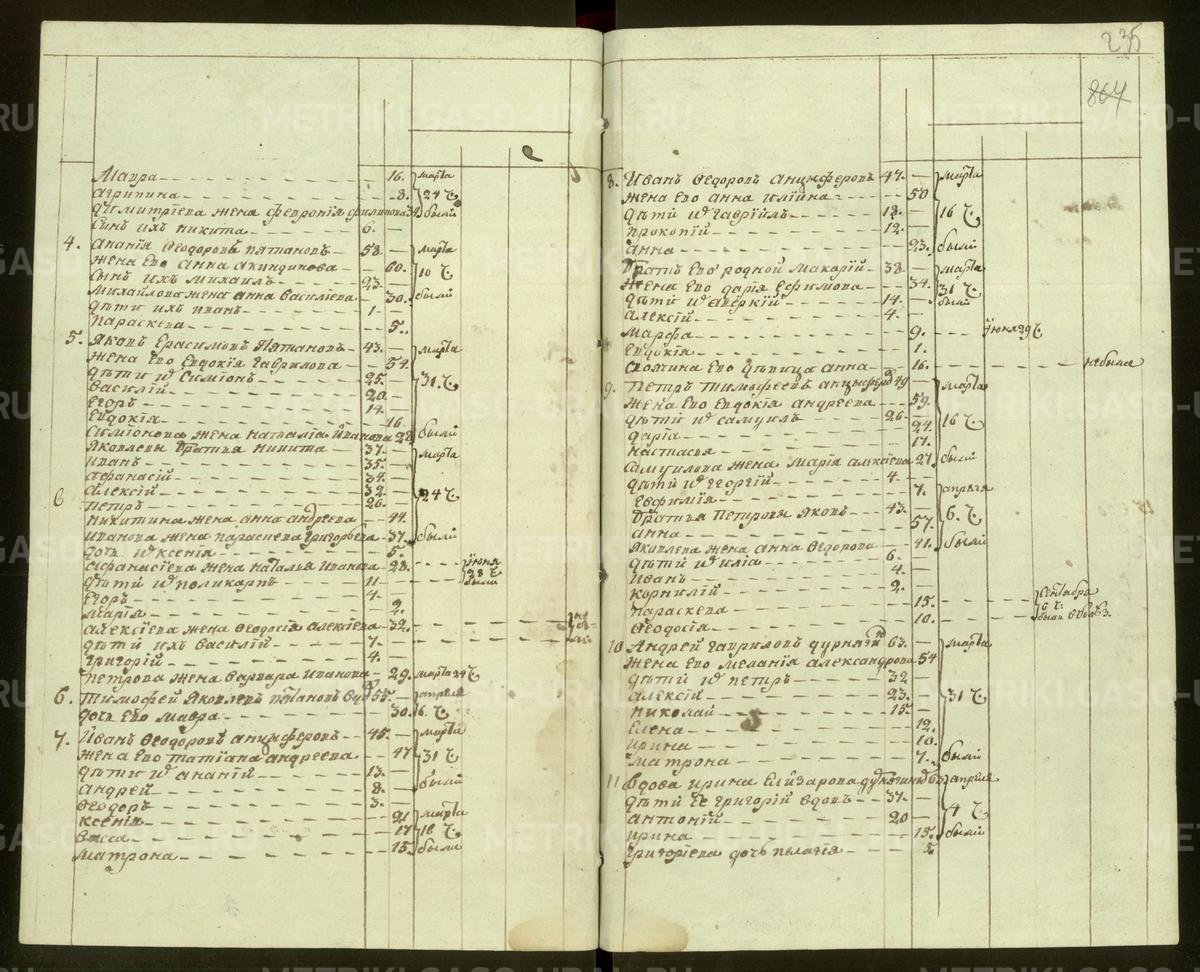 235
864
Мавра 16. марта
Агрипина 8. 24 ч.
Димитриева жена Феврония Филипова 32 были
Сынъ ихъ Никита 6.
4. Анания Ѳеодоровъ Пятановъ 58. марта
Жена его Анна Акиндинова 60. 10 ч.
Сынъ ихъ Михаилъ 23.
Михайлова жена Анна Василиева 30. были
Дѣти ихъ Иванъ 1.
Параскева 5.
5. Яковъ Ерасимовъ Пятановъ 43. марта
Жена его Евдокія Гаврилова 54.
Дѣти их Симіонъ 25. 31. ч.
Василій 20.
Егоръ 14.
Евдокія 16.
Симіонова жена Наталіа Иванова 28 были
Яковлевы братья Никита 37. марта
Иванъ 35.
Афанасій 34.
Алексій 32. 24 ч.
6 Петръ 26.
Никитина жена Анна Андреева 44.
Иванова жена Параскева Григорьева 37. были
Дочь их Ксенія 5.
Афанасіева жена Наталья Иванова 28. іюня
Дѣти их Поликарпъ 11 28 ч. были
Егоръ 4.
Марія 2.
Алексіева жена Ѳеодосія Алексіева 32.
Дѣти ихъ Василій 7.
Григорій 4.
Петрова жена Варвара Иванова 29. марта 24 ч.
6. Тимофей Яковлевъ Пятановъ вдо 55. апреля
Дочь его Мавра 30. 16. ч.
7. Иванъ Ѳеодоровъ Анцыферовъ 45. марта
Жена его Татіана Андреева 47 31 ч.
Дѣти их Ананій 13.
Андрей 8. были
Ѳеодоръ 3.
Ксенія 21 марта
Васса 17 16 ч.
Матрона 15. были
8. Иванъ Ѳедоровъ Анцыферовъ 47. марта
Жена его Анна Илійна 50
Дѣти их Гавріилъ 18. 16 ч.
Прокопій 12.
Анна 23. были
Братъ его родной Макарій 38. марта
Жена его Дарія Ефимова 34. 31 ч.
Дѣти их Аверкій 14. были
Алексій 4.
Марфа 9. іюня 29 ч.
Евдокія 1.
Своячина его дѣвица Анна 16. небыла
9. Петръ Тимофеевъ Анцыферо 49 марта
Жена его Евдокія Андреева 59.
Дѣти их Самуилъ 26. 16 ч.
Дарія 24.
Настасья 17.
Самуилова жена Марія Алексіева 27. были
Дѣти их Георгій 4.
Евфимія 7. апреля
Братья Петровы Яковъ 43. 6. ч.
Анна 57.
Яковлева жена Анна Ѳедорова 41. были
Дѣти их Иліа 6.
Иванъ 4.
Корнилій 2. сентября
Параскева 15. 6 ч.
Ѳеодосія 10.
10 Андрей Гавриловъ Дурня 63. марта
Жена его Меланія Александрова 54
Дѣти их Петръ 32
Алексій 23. 31 ч.
Николай 15.
Елена 12.
Ирина 10.
Матрона 7. были
11 Вдова Ирина Елизарова 63 апреля
Дѣти ее Григорій вдовъ 37.
Антоній 20 4 ч.
Ирина 15. были
Григоріева дочь Пелагія 5